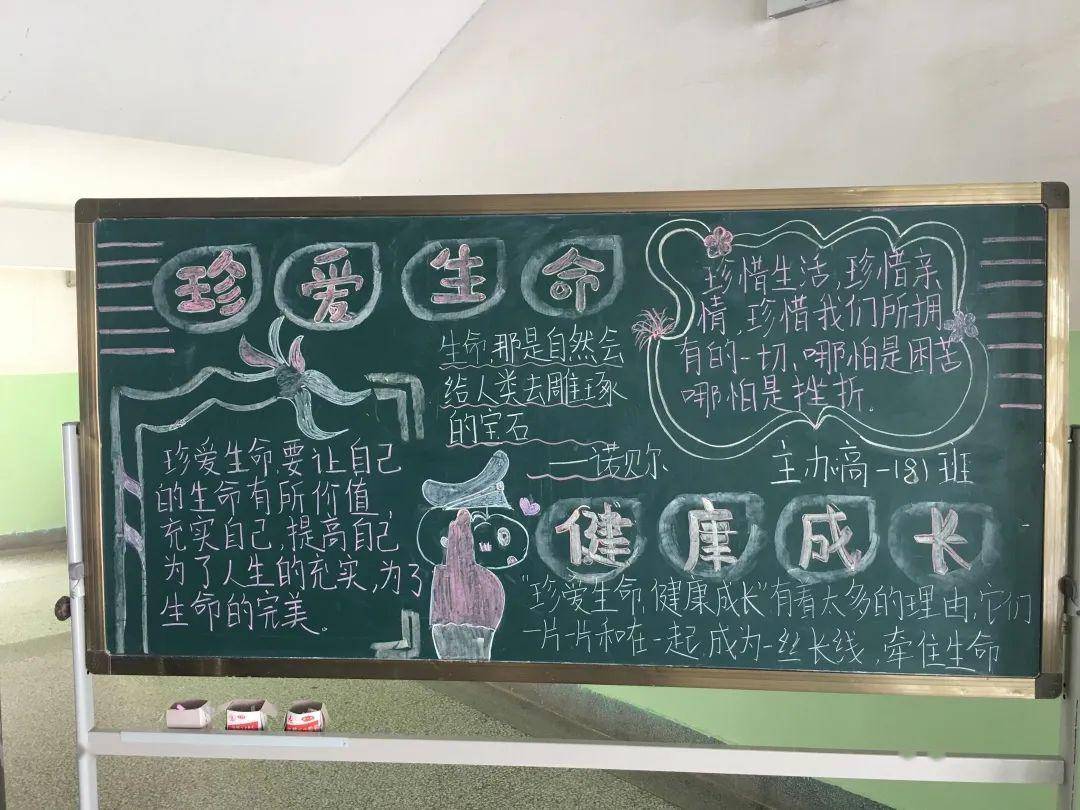 珍爱生命
生命,那是自然会
给人类去雕琢
的宝石
——诺贝尔
珍惜生活,珍惜亲
情,珍惜我们所拥
有的一切、哪怕是困苦
哪怕是挫折。
主办:高一181班
珍爱生命,要让自己
的生命有所价值,
充实自己,提高自己
为了人生的充实,为了
生命的完美。
健康成长
“珍爱生命,健康成长”有着太多的理由,它们
一片一片和在一起,成为一丝长线,牵住生命